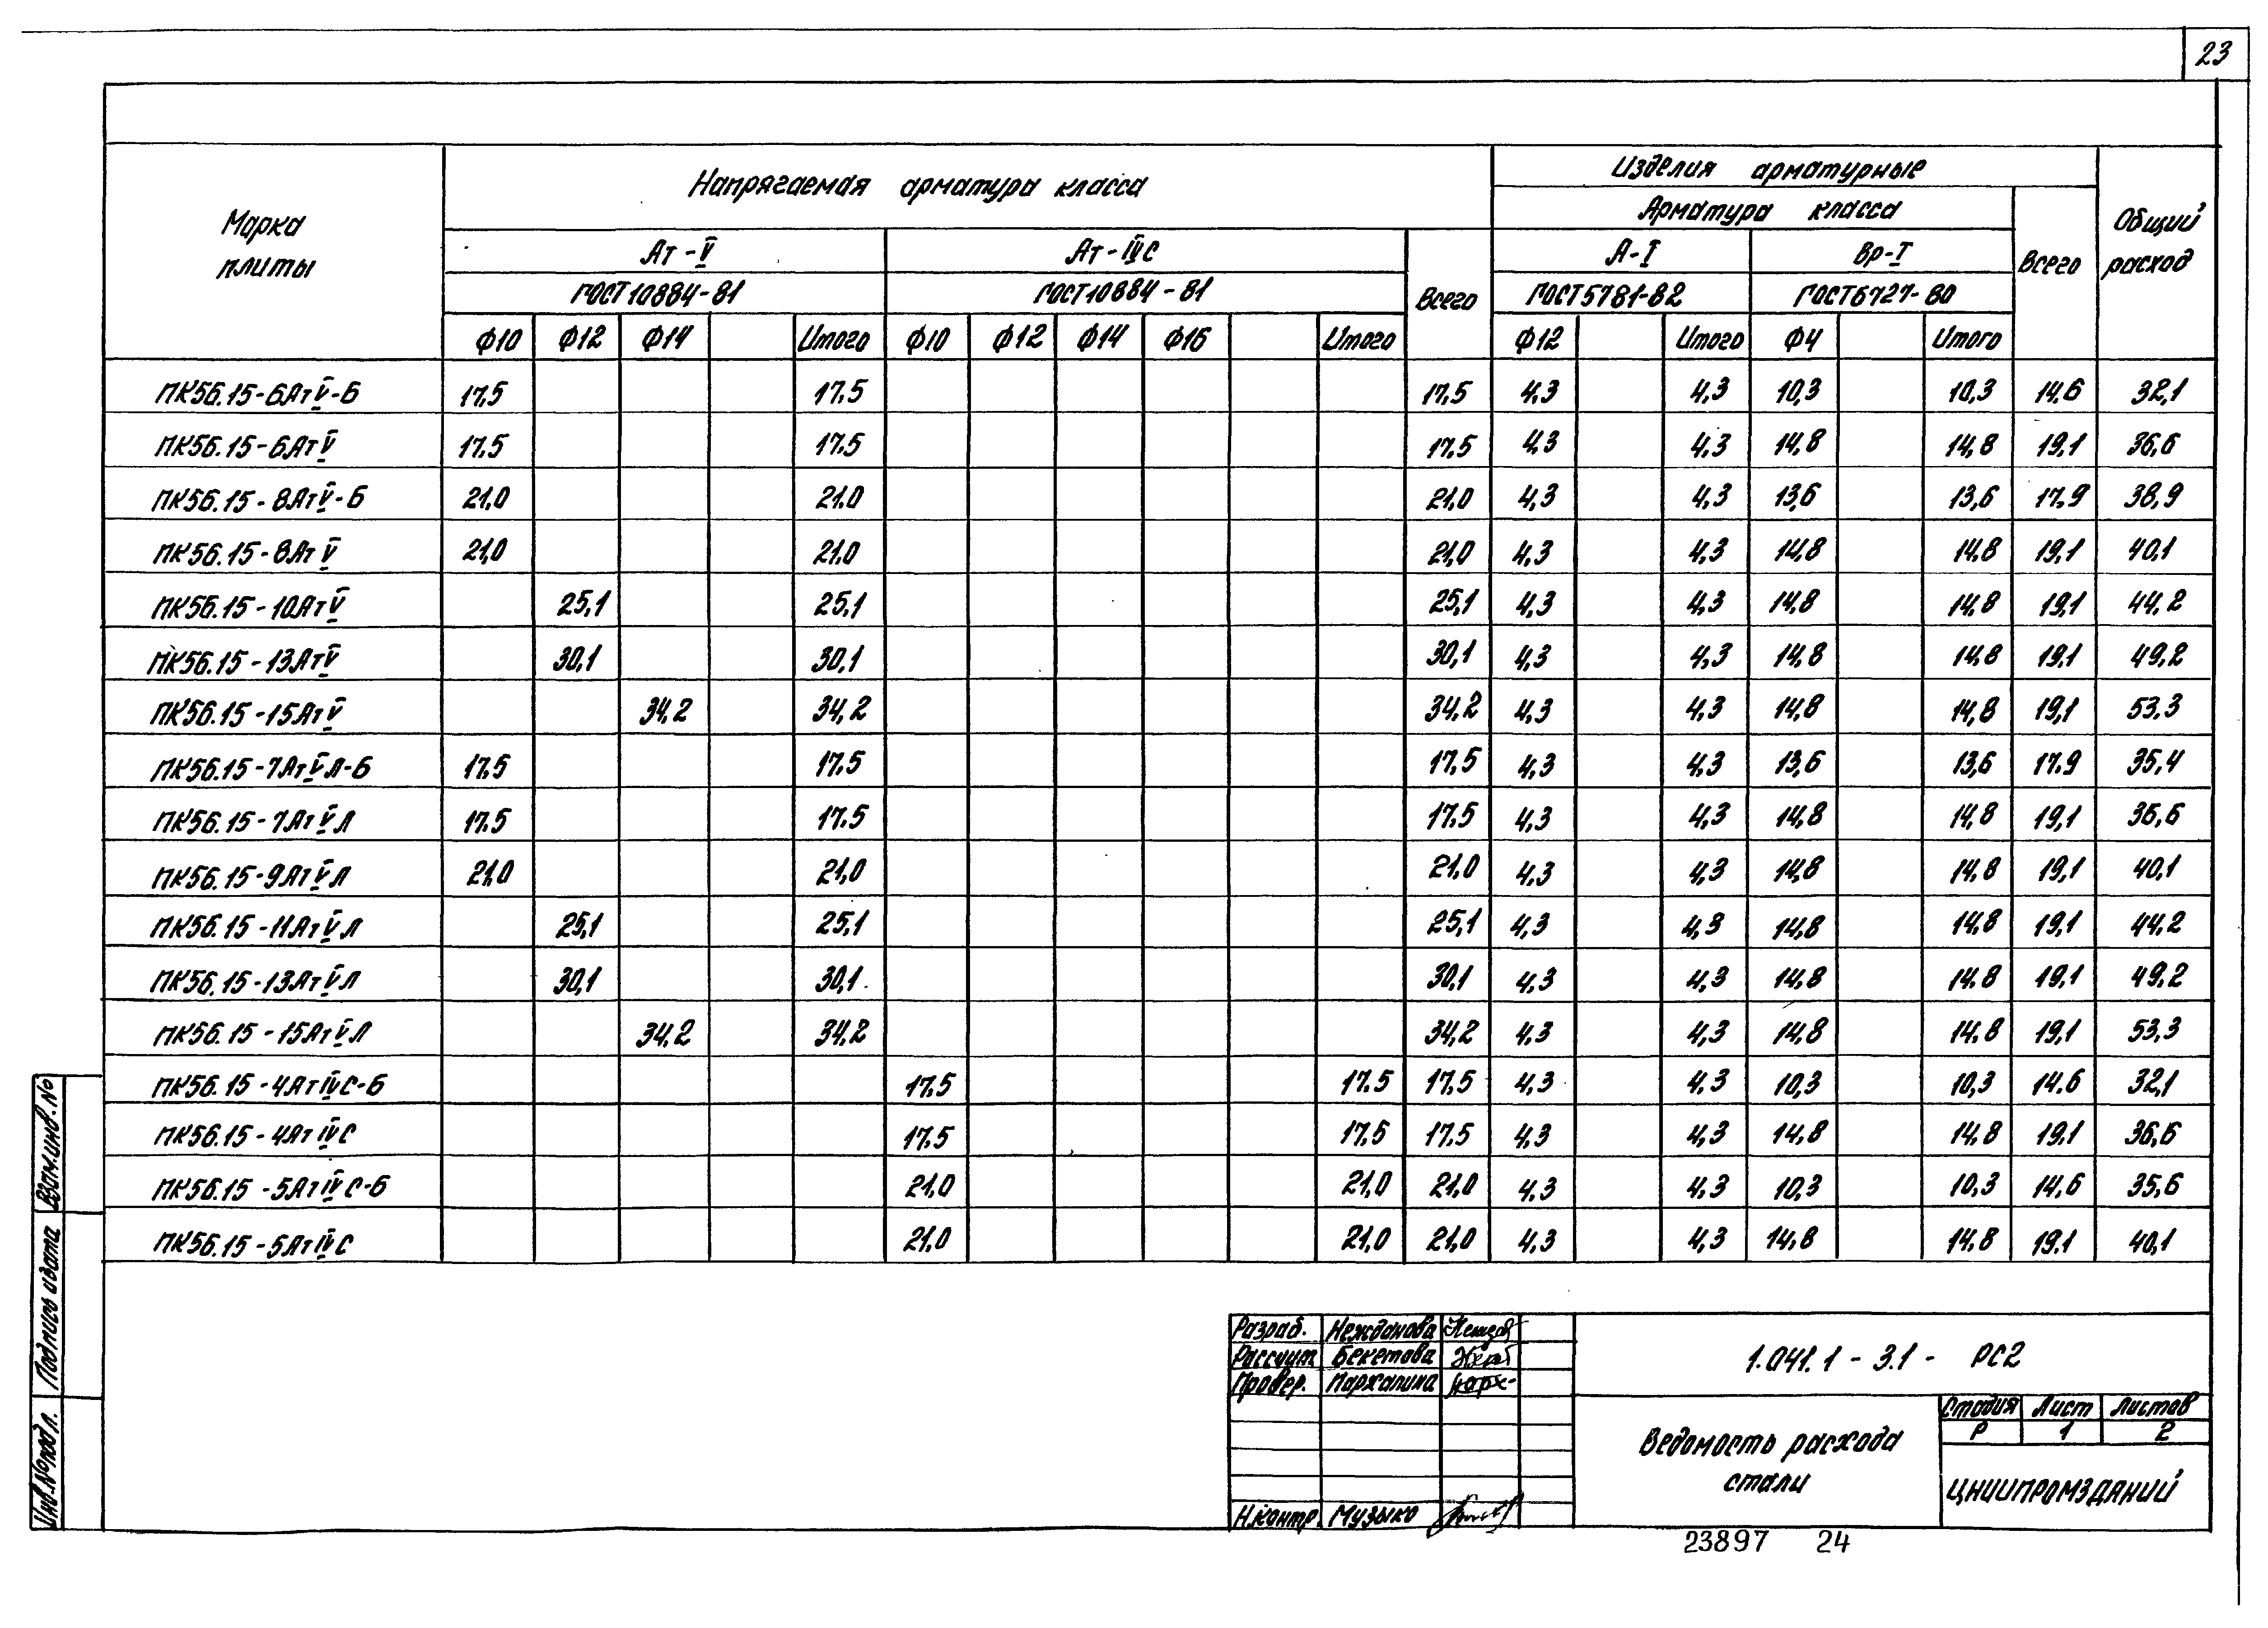 23
Марка плиты
Напрягаемая арматура класса
Изделия арматурные
Общий расход
Арматура класса
Ат-V
Ат-IVС
Всего
А-I
Вр-I
Всего
ГОСТ 10884-81
ГОСТ 10884-81
ГОСТ 5781-82
ГОСТ 6727-80
Ф10 Ф12 Ф14 Итого Ф10 Ф12 Ф14 Ф16 Итого Ф12 Итого Ф4 Итого
ПК56.15-6АтV-Б 17,5 17,5 17,5 4,3 4,3 10,3 10,3 14,6 32,1
ПК56.15-6АтV 17,5 17,5 17,5 4,3 4,3 14,8 14,8 19,1 36,6
ПК56.15-8АтV-Б 21,0 21,0 21,0 4,3 4,3 13,6 13,6 17,9 38,9
ПК56.15-8АтV 21,0 21,0 21,0 4,3 4,3 14,8 14,8 19,1 40,1
ПК56.15-10АтV 25,1 25,1 25,1 4,3 4,3 14,8 14,8 19,1 44,2
ПК56.15-13АтV 30,1 30,1 30,1 4,3 4,3 14,8 14,8 19,1 49,2
ПК56.15-15АтV 34,2 34,2 34,2 4,3 4,3 14,8 14,8 19,1 53,3
ПК56.15-7АтVЛ-Б 17,5 17,5 17,5 4,3 4,3 13,6 13,6 17,9 35,4
ПК56.15-7АтVЛ 17,5 17,5 17,5 4,3 4,3 14,8 14,8 19,1 36,6
ПК56.15-9АтVЛ 21,0 21,0 21,0 4,3 4,3 14,8 14,8 19,1 40,1
ПК56.15-11АтVЛ 25,1 25,1 25,1 4,3 4,3 14,8 14,8 19,1 44,2
ПК56.15-13АтVЛ 30,1 30,1 30,1 4,3 4,3 14,8 14,8 19,1 49,2
ПК56.15-15АтVЛ 34,2 34,2 34,2 4,3 4,3 14,8 14,8 19,1 53,3
ПК56.15-4АтIVС-Б 17,5 17,5 17,5 4,3 4,3 10,3 10,3 14,6 32,1
ПК56.15-4АтIVС 17,5 17,5 17,5 4,3 4,3 14,8 14,8 19,1 36,6
ПК56.15-5АтIVС-Б 21,0 21,0 21,0 4,3 4,3 10,3 10,3 14,6 35,6
ПК56.15-5АтIVС 21,0 21,0 21,0 4,3 4,3 14,8 14,8 19,1 40,1
Взам.инв.№
Подпись и дата
Инв.№ подл.
Разраб. Нежданова
Рассчит. Бекетова
Провер. Пархалина
Н.контр. Музыко
1.041.1-3.1-РС2
Ведомость расхода
стали
Стадия Лист Листов
Р 1 2
ЦНИИПРОМЗДАНИЙ
23897 24